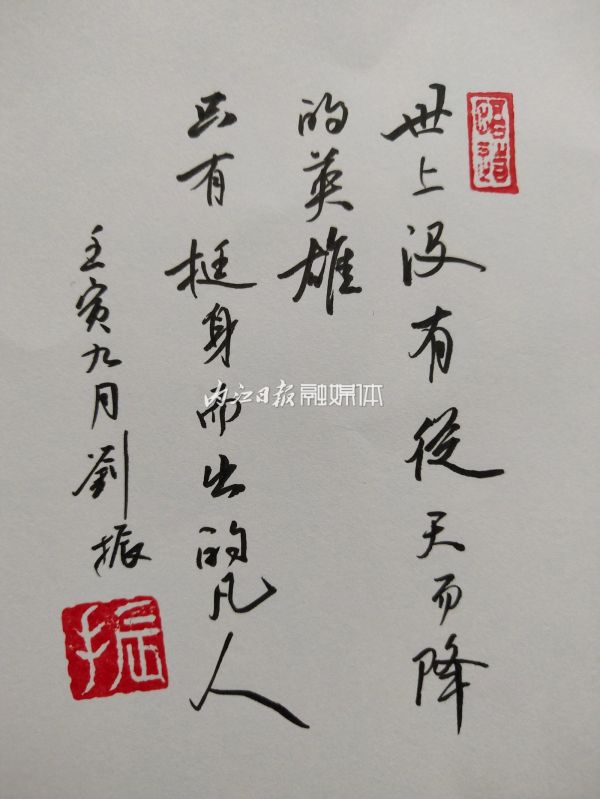 世上没有從天而降
的英雄
只有挺身而出的凡人
壬寅九月劉振
振
内江日报融媒体